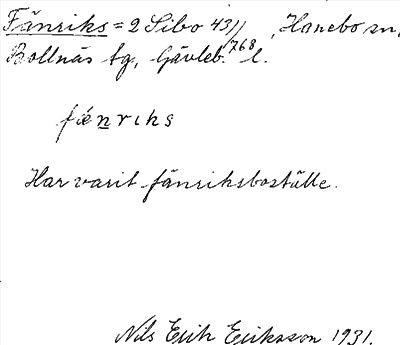 Fänriks = 2 Sibo 43//768, Hanebo sn,
Bollnäs tg, Gävleb. l.
fǽnriks
Har varit fänriksboställe.
Nils Erik Eriksson 1931.